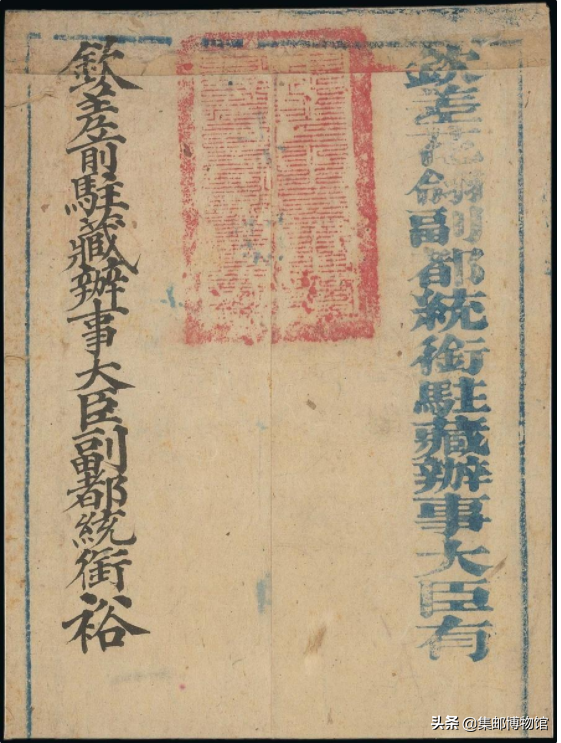 欽差花翎副都統銜駐藏辦事大臣有
欽差前駐藏辦事大臣副都統銜裕
头条 @集邮博物馆